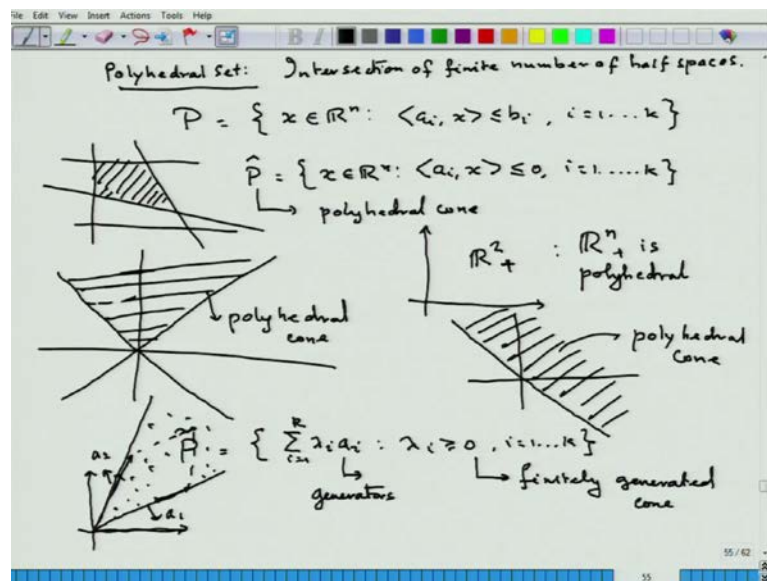 File Edit View Insert Actions Tools Help
Polyhedral Set: Intersection of finite number of half spaces.
P = { x ∈ ℝⁿ: <aᵢ, x> ≤ bᵢ , i = 1 .... k }
P̂ = { x ∈ ℝⁿ: <aᵢ, x> ≤ 0, i = 1 ..... k }
polyhedral cone
ℝ²₊ : ℝⁿ₊ is
polyhedral
polyhedral
cone
polyhedral
cone
P̃ = { ∑ᵢ₌₁ᵏ λᵢ aᵢ : λᵢ ≥ 0 , i = 1 ... k }
a₂
a₁
generators
finitely generated
cone
55 / 62
55